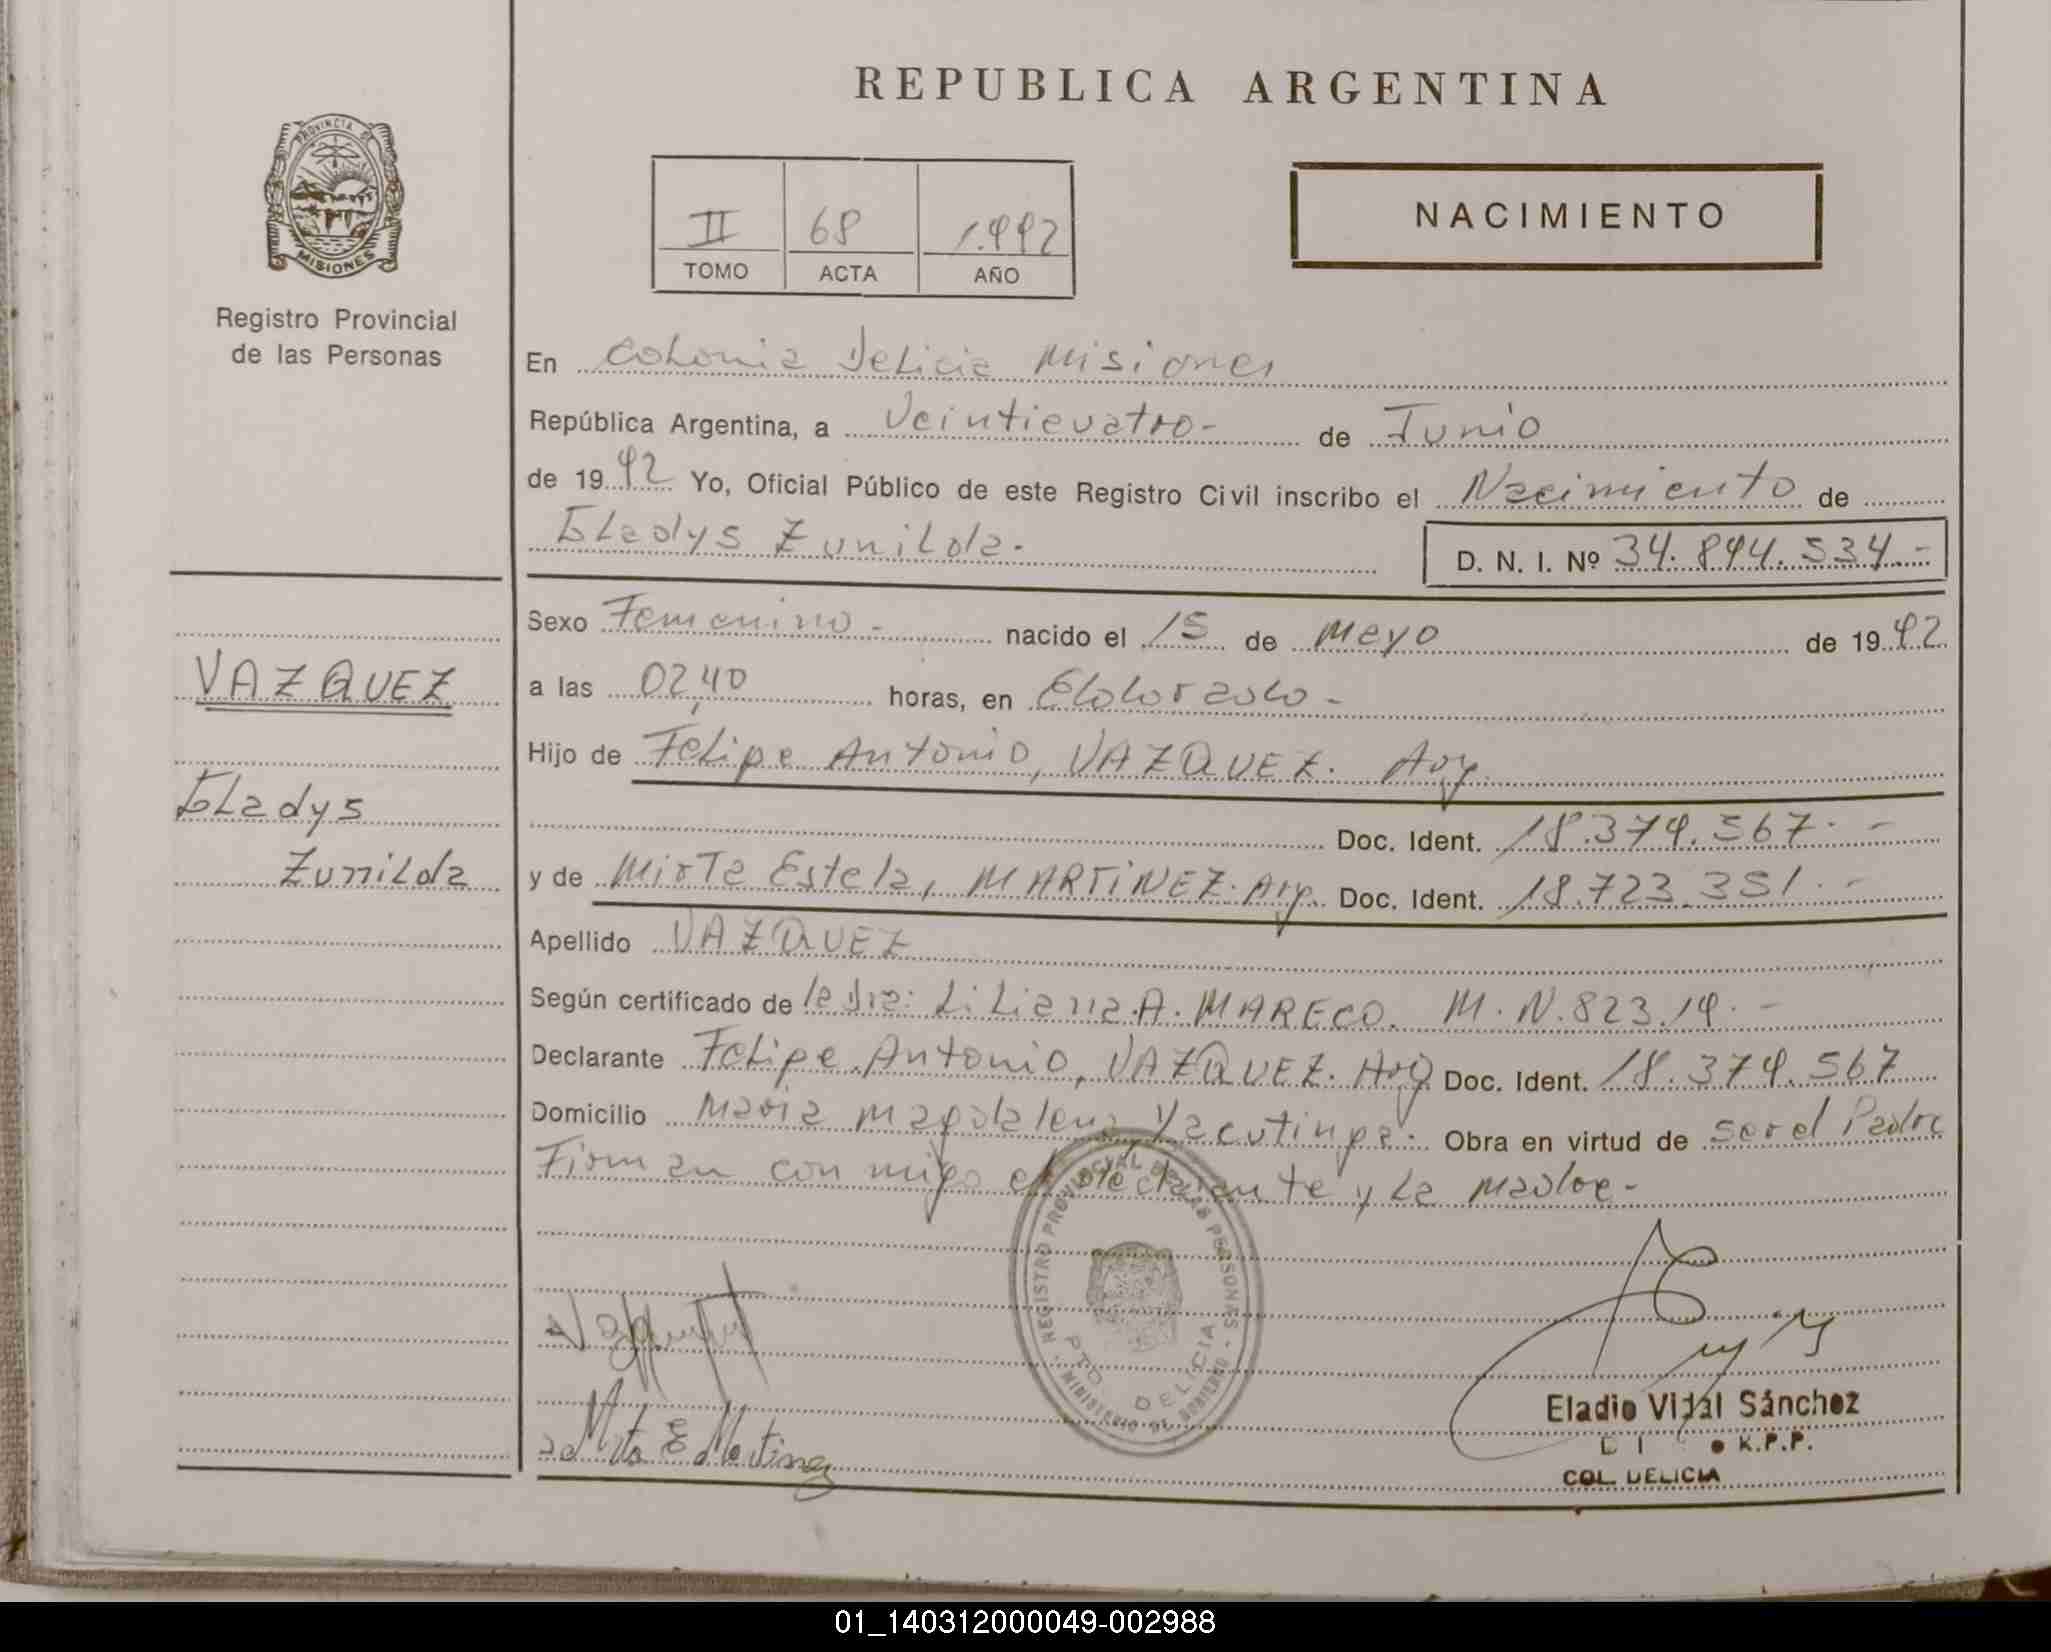 REPUBLICA ARGENTINA
PROVINCIA DE
MISIONES
Registro Provincial
de las Personas
II 68 1.992
TOMO ACTA AÑO
NACIMIENTO
En Colonia Delicia Misiones
República Argentina, a Veinticuatro- de Junio
de 1992 Yo, Oficial Público de este Registro Civil inscribo el Nacimiento de
Gladys Zunilda.
D. N. I. Nº 34.894.534.-
VAZQUEZ
Gladys
Zunilda
Sexo Femenino- nacido el 15 de Mayo de 1992.
a las 02,40 horas, en Eldorado-
Hijo de Felipe Antonio, VAZQUEZ. Arg.
Doc. Ident. 18.379.567.-
y de Mirta Estela, MARTINEZ. Arg. Doc. Ident. 18.723.351.-
Apellido VAZQUEZ
Según certificado de la Dra: Liliana.A. MARECO. M.N.823.19.-
Declarante Felipe Antonio, VAZQUEZ. Arg Doc. Ident. 18.379.567
Domicilio Maria Magdalena Yacutinga. Obra en virtud de ser el Padre
Firman con migo el declarante y La Madre-
REGISTRO PROVINCIAL DE LAS PERSONAS
MINISTERIO DE GOBIERNO
PTO. DELICIA
Mirta E Martinez
Eladio Vidal Sánchez
R.P.P.
COL. DELICIA
01_140312000049-002988